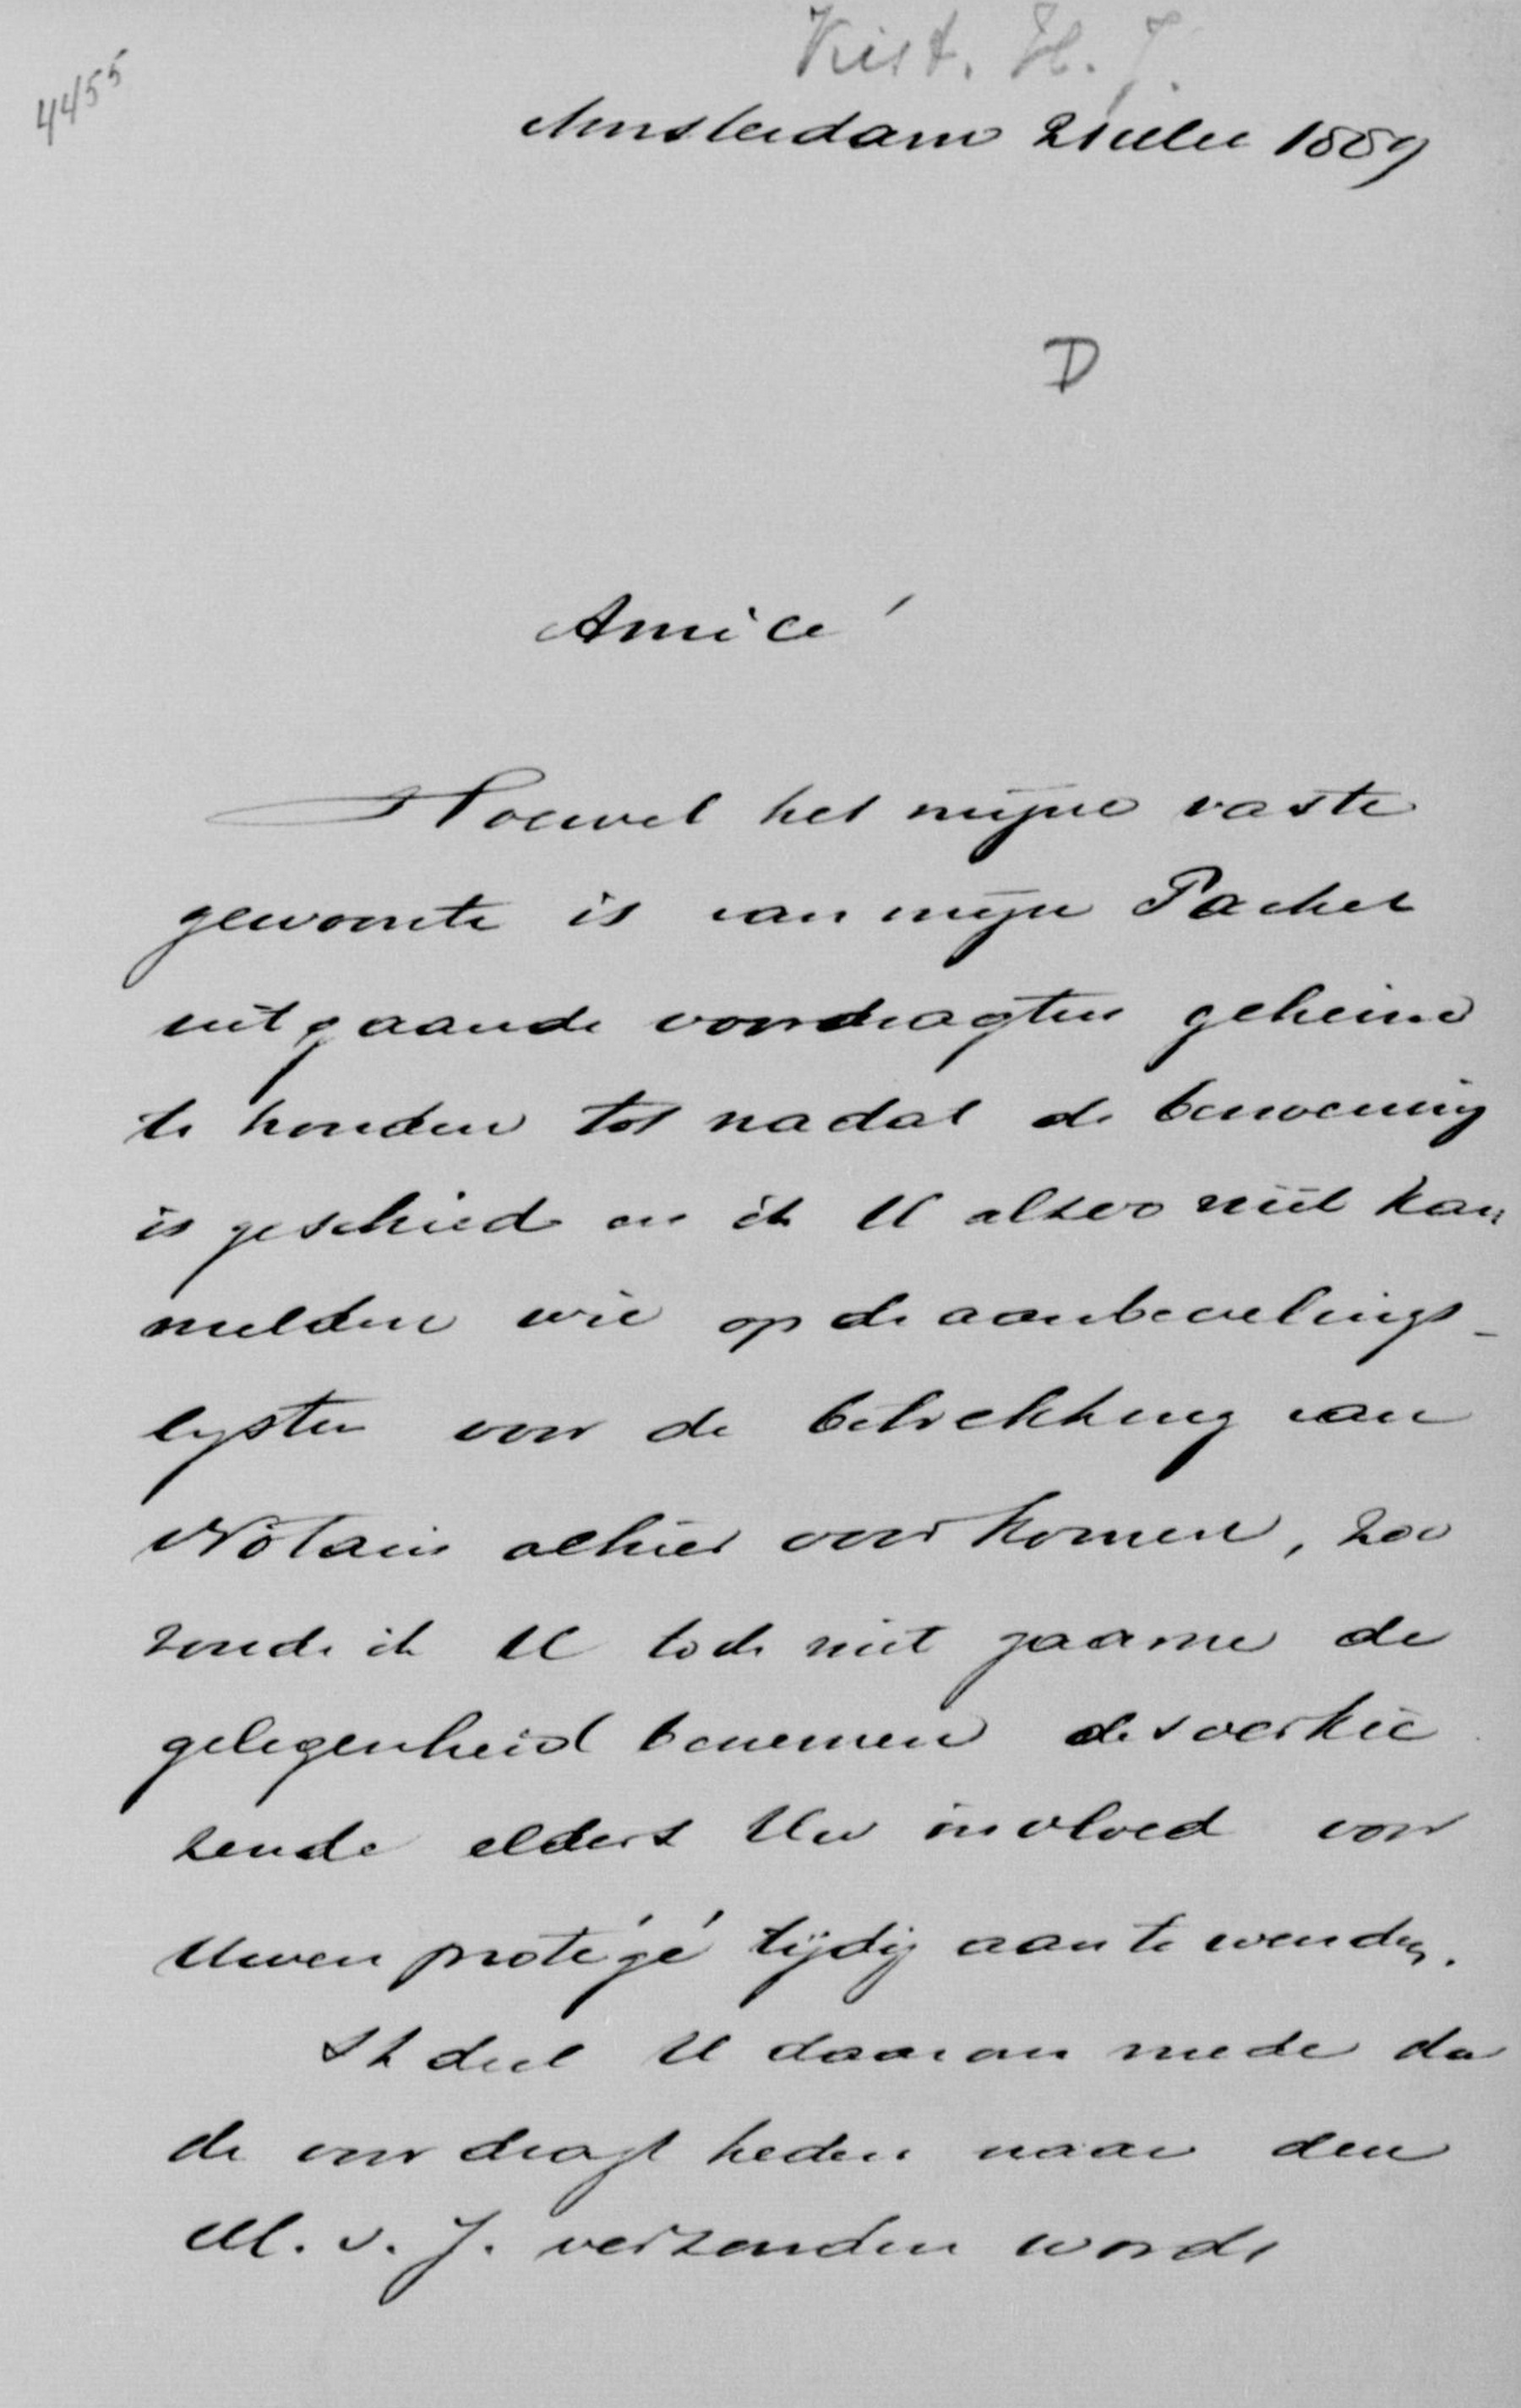 4455
Kist. H. J.
Amsterdam 2 Julij 1889
D
Amice'
Hoewel het mijne vaste
gewoonte is van mijn Parket
uitgaande voordragten geheim
te houden tot nadat de benoeming
is geschied en ik U alzoo niet kan
melden wie op de aanbevelings-
lijsten voor de betrekking van
Notaris alhier voorkomen, zoo
zoude ik U toch niet gaarne de
gelegenheid benemen desverkie
zende elders Uw invloed voor
Uwen protégé tijdig aan te wenden.
Ik deel U daarom mede da
de voordragt heden naar den
M. v. J. verzonden wordt